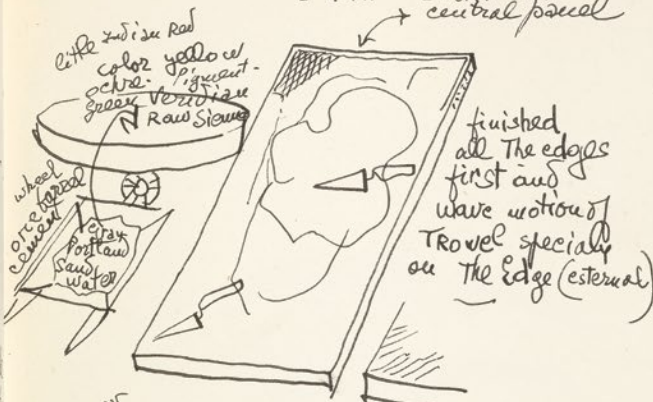 central panel
little Indian Red
color yellow
ochre. Pigment-
green Veridian
Raw Sienna
wheel
one barrel
cement
Gray
Portland
Sand
Water
finished
all The edges
first and
wave motion of
TROWEL specialy
on The Edge (esternal)